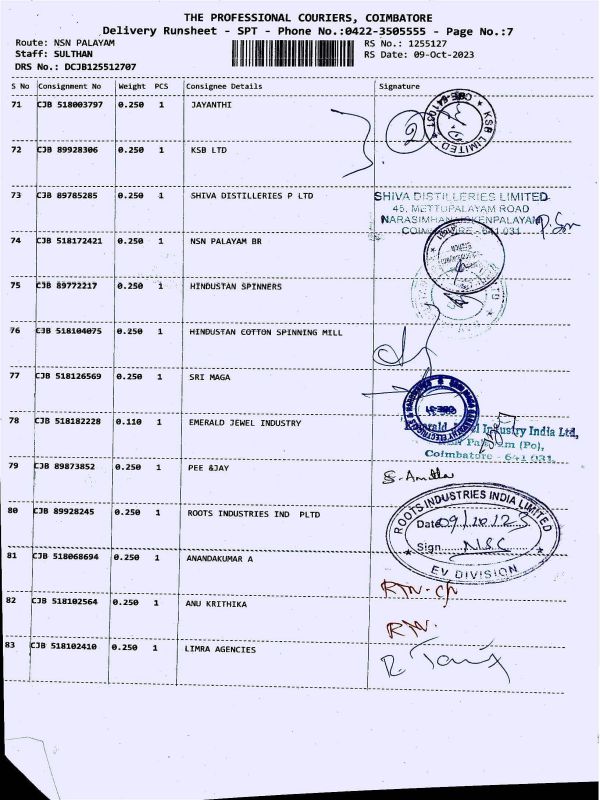 THE PROFESSIONAL COURIERS, COIMBATORE
Delivery Runsheet - SPT - Phone No.:0422-3505555 - Page No.:7
Route: NSN PALAYAM RS No.: 1255127
Staff: SULTHAN RS Date: 09-Oct-2023
DRS No.: DCJB125512707
S No Consignment No Weight PCS Consignee Details Signature
71 CJB 518003797 0.250 1 JAYANTHI
KSB LIMITED
72 CJB 89928306 0.250 1 KSB LTD
73 CJB 89785285 0.250 1 SHIVA DISTILLERIES P LTD
SHIVA DISTILLERIES LIMITED
45, METTUPALAYAM ROAD
74 CJB 518172421 0.250 1 NSN PALAYAM BR
75 CJB 89772217 0.250 1 HINDUSTAN SPINNERS
76 CJB 518104075 0.250 1 HINDUSTAN COTTON SPINNING MILL
77 CJB 518126569 0.250 1 SRI MAGA
78 CJB 518182228 0.110 1 EMERALD JEWEL INDUSTRY
Industry India Ltd,
(Po),
Coimbatore - 641 031.
79 CJB 89873852 0.250 1 PEE &JAY
80 CJB 89928245 0.250 1 ROOTS INDUSTRIES IND PLTD
ROOTS INDUSTRIES INDIA LIMITED
Date 09/10/23
Sign. NSC
EV DIVISION
81 CJB 518068694 0.250 1 ANANDAKUMAR A
82 CJB 518102564 0.250 1 ANU KRITHIKA
83 CJB 518102410 0.250 1 LIMRA AGENCIES